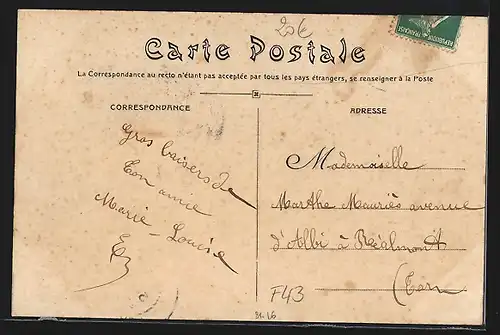 20€
Carte Postale
La Correspondance au recto n'étant pas acceptée par tous les pays étrangers, se renseigner à la Poste
CORRESPONDANCE
ADRESSE
Gros baisers de
ton amie
Marie-Louise
Mademoiselle
Marthe Mauriès avenue
d'Albi à Réalmont
(Tarn
F43